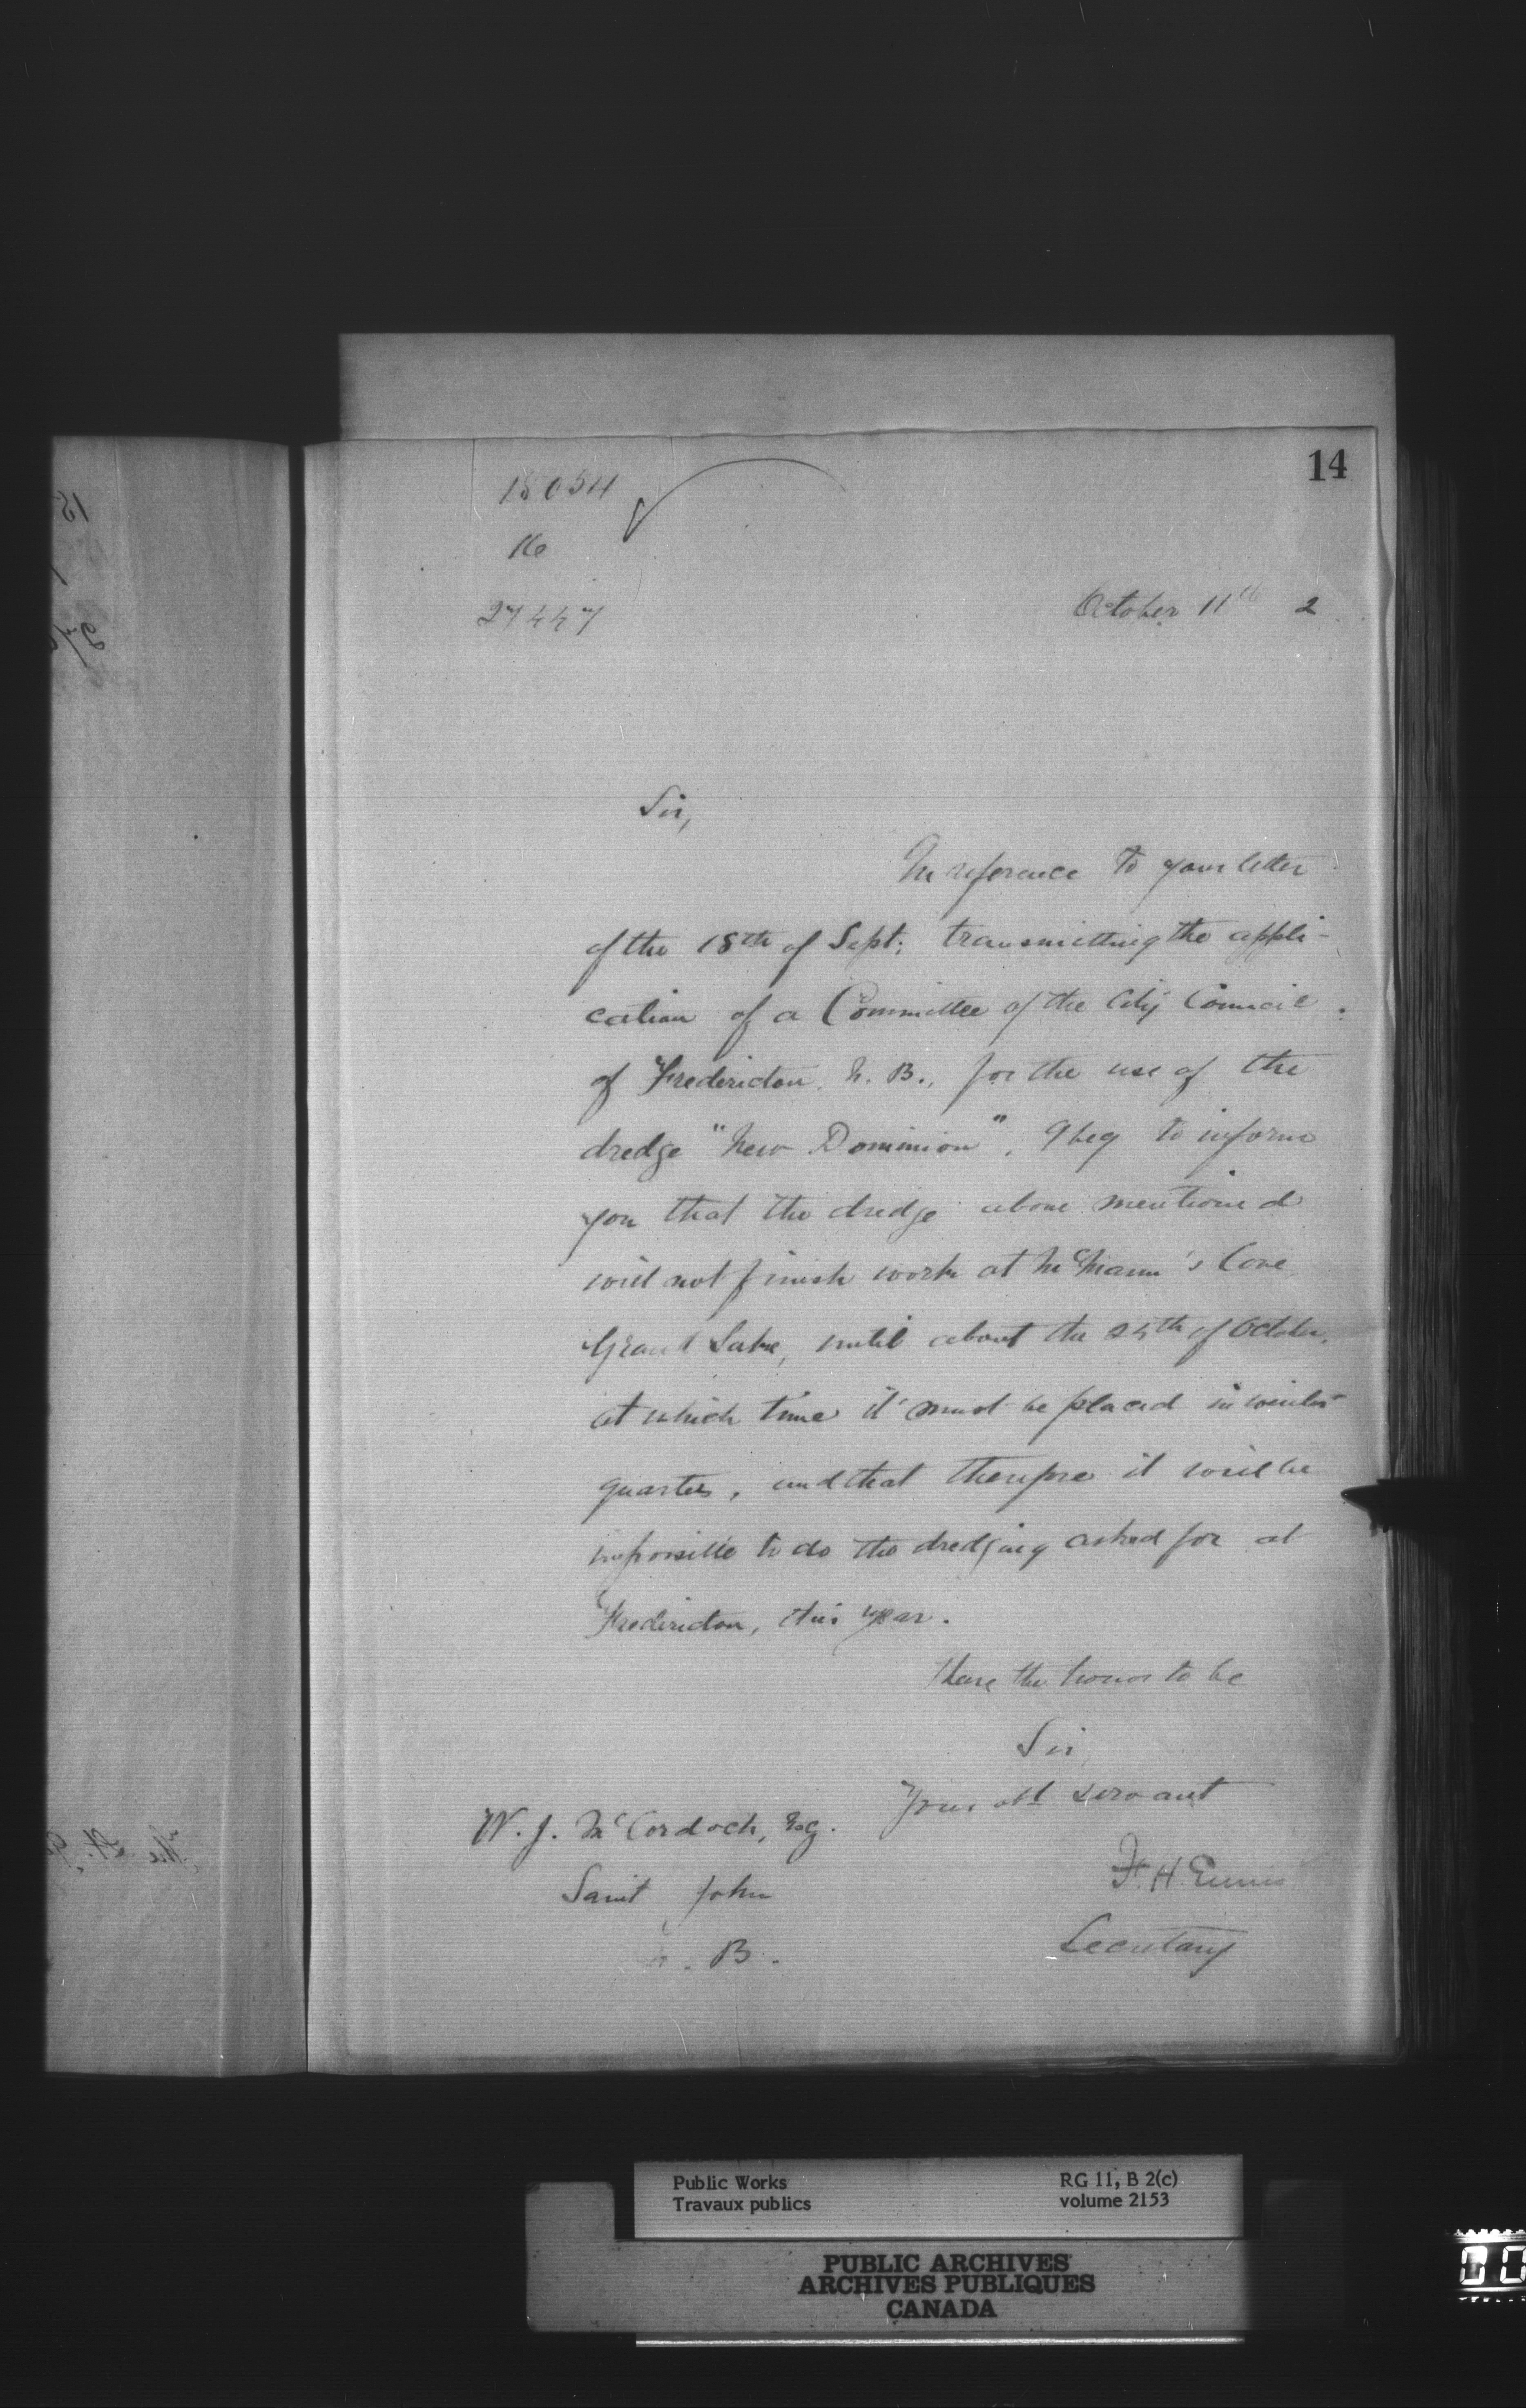 14
18054
16
27447
October 11th 2
Sir,
In reference to your letter
of the 18th of Sept: transmitting the appli-
cation of a Committee of the City Council
of Fredericton N. B., for the use of the
dredge "New Dominion", I beg to inform
you that the dredge above mentioned
will not finish work at McMann's Cove
Grand Lake, until about the 25th of October,
at which time it must be placed in winter
quarters, and that therefore it will be
impossible to do the dredging asked for at
Fredericton, this year.
I have the honor to be
Sir
Your obt servant
F. H. Ennis
Secretary
W. J. McCordock, Esq.
Saint John
N. B.
Public Works
Travaux publics
RG 11, B 2(c)
volume 2153
PUBLIC ARCHIVES
ARCHIVES PUBLIQUES
CANADA